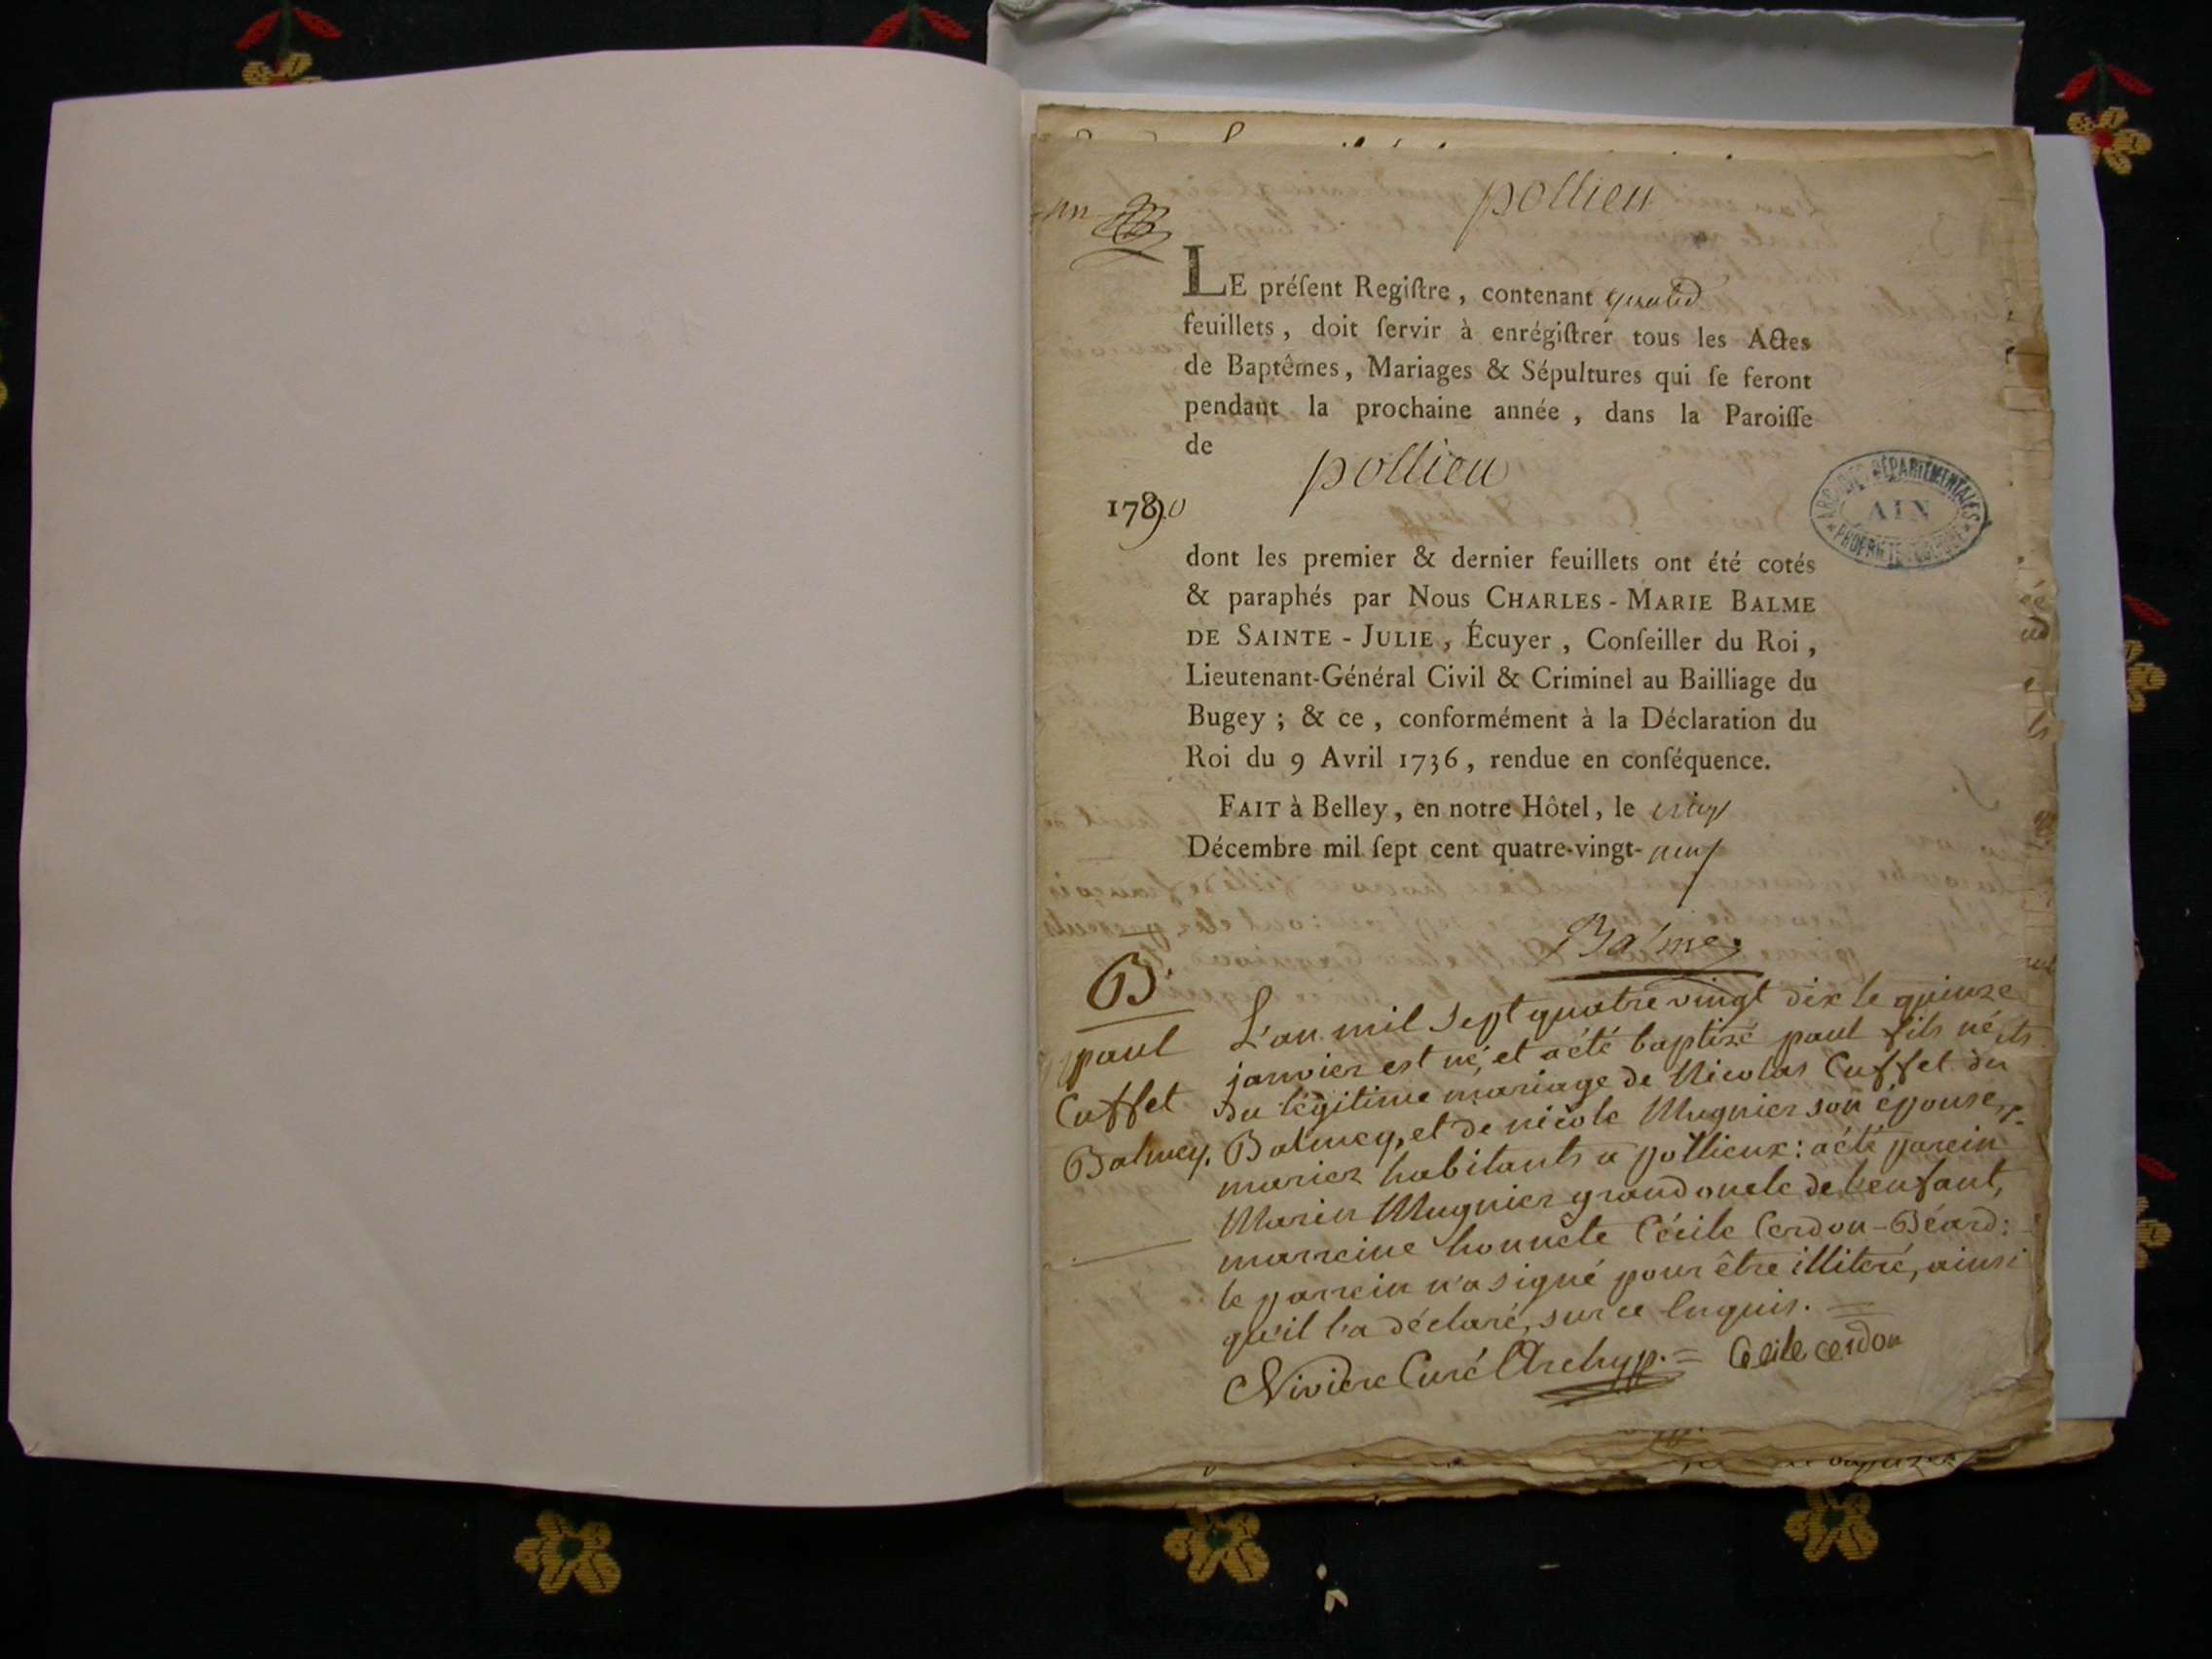 pollieu
un
LE préſent Regiſtre, contenant
feuillets, doit ſervir à enrégiſtrer tous les Actes
de Baptêmes, Mariages & Sépultures qui ſe feront
pendant la prochaine année, dans la Paroiſſe
de
pollieu
1789.0
ARCHIVES DÉPARTEMENTALES
AIN
PROPRIÉTÉ PUBLIQUE
dont les premier & dernier feuillets ont été cotés
& paraphés par Nous CHARLES-MARIE BALME
DE SAINTE-JULIE, Écuyer, Conſeiller du Roi,
Lieutenant-Général Civil & Criminel au Bailliage du
Bugey; & ce, conformément à la Déclaration du
Roi du 9 Avril 1736, rendue en conſéquence.
FAIT à Belley, en notre Hôtel, le vingt
Décembre mil ſept cent quatre-vingt-neuf
Balme
B.
paul
Cuffet
Balmey.
L'an mil sept quatre vingt dix le quinze
janvier est né, et a été baptizé paul fils né
du légitime mariage de Nicolas Cuffet du
Balmey, et de nicole Mugnier son épouse,
mariez habitants a pollieux: a été parein
Marin Mugnier grand oncle de l'enfant,
marreine honnête Cécile Cerdon-Béard:
le parrein n'a signé pour être illiteré, ainsi
qu'il l'a déclaré, sur ce Enquis. =
Vivière Curé Archyp. = Cecile cerdon